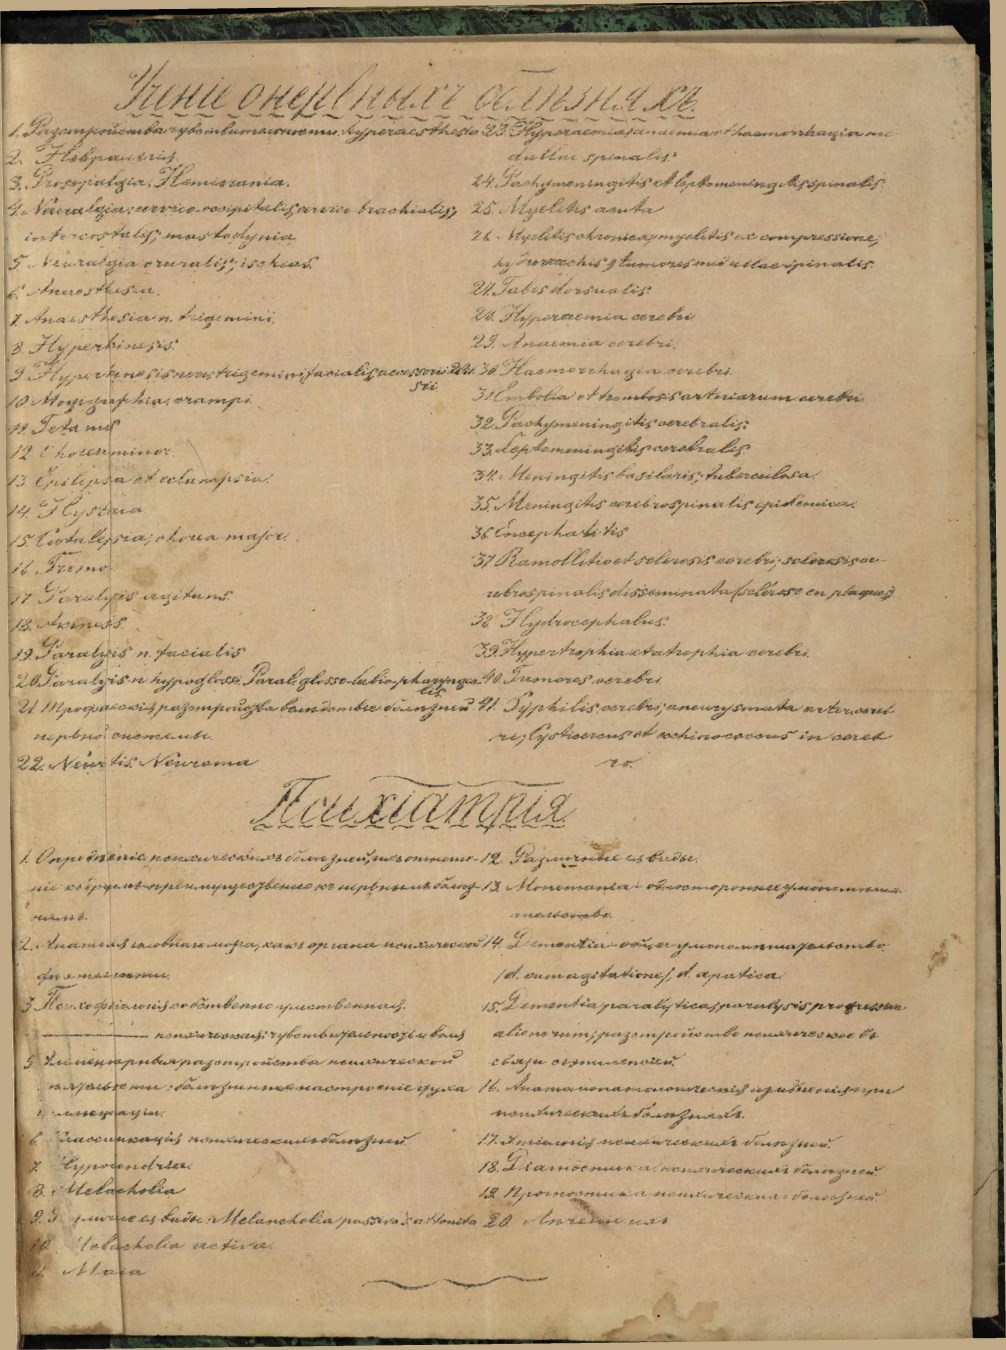 Ученіе о нервныхъ болѣзняхъ.
1. Разстройства чувствительности. Hyperaesthesia
2. Невралгія.
3. Prosopalgia. Hemicrania.
4. Neuralgia; cervico-occipitalis, cervico brachialis,
intercostalis; mastodynia
5. Neuralgia cruralis; ischias.
6. Anaesthesia.
7. Anaesthesia n. trigemini.
8. Hyperkinesis.
9. Hyperkinesis nerv. trigemini, facialis, accessorii Willi-
sii
10. Mogigraphia, crampi.
11. Tetanus
12. Chorea minor.
13. Epilepsia et eclampsia.
14. Hysteria
15. Catalepsia; chorea major.
16. Tremor
17. Paralysis agitans.
18. Akinesis.
19. Paralysis n. facialis
20. Paralysis n. hypoglossi. Paral. glosso-labio-pharyngea-
lis.
21. Трофическія разстройства вслѣдствіе болѣзней
нервной системы.
22. Neuritis. Neuroma
23. Hyperaemia, anaemia et haemorrhagia me-
dullae spinalis.
24. Pachymeningitis et leptomeningitis spinalis.
25. Myelitis acuta
26. Myelitis chronica; myelitis ex compressione;
hydrorachis; tumores medullae spinalis.
27. Tabes dorsualis.
28. Hyperaemia cerebri
29. Anaemia cerebri.
30. Haemorrhagia cerebri.
31. Embolia et trombosis arteriarum cerebri
32. Pachymeningitis cerebralis.
33. Leptomeningitis cerebralis
34. Meningitis basilaris; tuberculosa.
35. Meningitis cerebrospinalis epidemica.
36. Encephalitis
37. Ramollitio et sclerosis cerebri; sclerosis ce-
rebrospinalis disseminata (sclérose en plaques)
38. Hydrocephalus.
39. Hypertrophia et atrophia cerebri.
40. Tumores cerebri.
41. Syphilis cerebri; aneurysmata arter. cereb-
ri; Cysticercus et echinococcus in cereb
ro.
Психіатрія
1. Опредѣленіе психическихъ болѣзней, ихъ отноше-
ніе къ другимъ преимущественно къ нервнымъ болѣз-
нямъ.
2. Анатомія головнаго мозга, какъ органа психической
дѣятельности.
3. Психофизіологія собственно умственная.
психическая: чувствительность и воля
5. Элементарныя разстройства психической
дѣятельности: болѣзненное настроеніе духа
6. Классификація психическихъ болѣзней
7. Hypocondria.
8. Melacholia
9. Различные ея виды: Melancholia passiva s. attonita
10. Melacholia activa.
11. Maia
12. Различные ея виды.
13. Monomania - одностороннее умопомѣша-
тельство.
14. Dementia - общее умопомѣшательство
(d. cum agitatione), d. apatica.
15. Dementia paralytica, paralysis progressiva
alienorum; разстройство психическое въ
связи съ эпилепсіей.
16. Анатомопатологическія измѣненія при
психическихъ болѣзняхъ.
17. Этіологія психическихъ болѣзней.
18. Діагностика психическихъ болѣзней
19. Прогностика психическихъ болѣзней
20. Лѣченіе ихъ